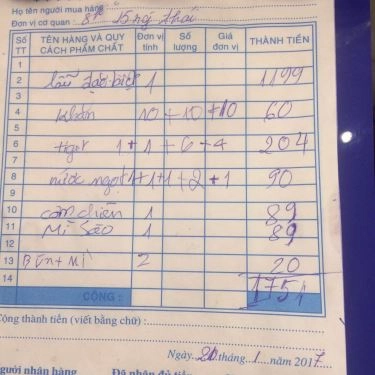 Họ tên người mua hàng
Đơn vị cơ quan :
Số TT TÊN HÀNG VÀ QUY CÁCH PHẨM CHẤT Đơn vị tính Số lượng Giá đơn vị THÀNH TIỀN
1
2 lẩu đặc biệt 1 1199
3
4 khăn 10 + 10 + 10 60
5
6 tiger 1 + 1 + 6 + 4 204
7
8 nước ngọt 1+1+1+2+1 90
9
10 cơm chiên 1 89
11 Mì Sào 1 89
12
13 Bún + Mì 2 20
14
CỘNG : 1751
Cộng thành tiền (viết bằng chữ) :
Ngày 20 tháng 1 năm 2017
người nhận hàng Đã nhận đủ tiền